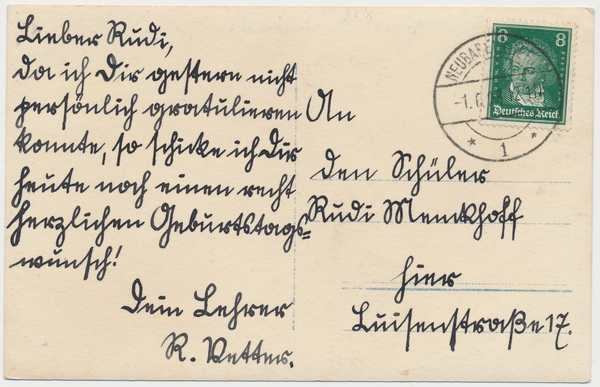 Lieber Rudi,
da ich Dir gestern nicht
persönlich gratulieren
konnte, so schicke ich Dir
heute noch einen recht
herzlichen Geburtstags-
wunsch!
Dein Lehrer
R. Vetter.
An
den Schüler
Rudi Menckhoff
hier
Luisenstraße 17.
8 8
Deutsches Reich
* 1 *